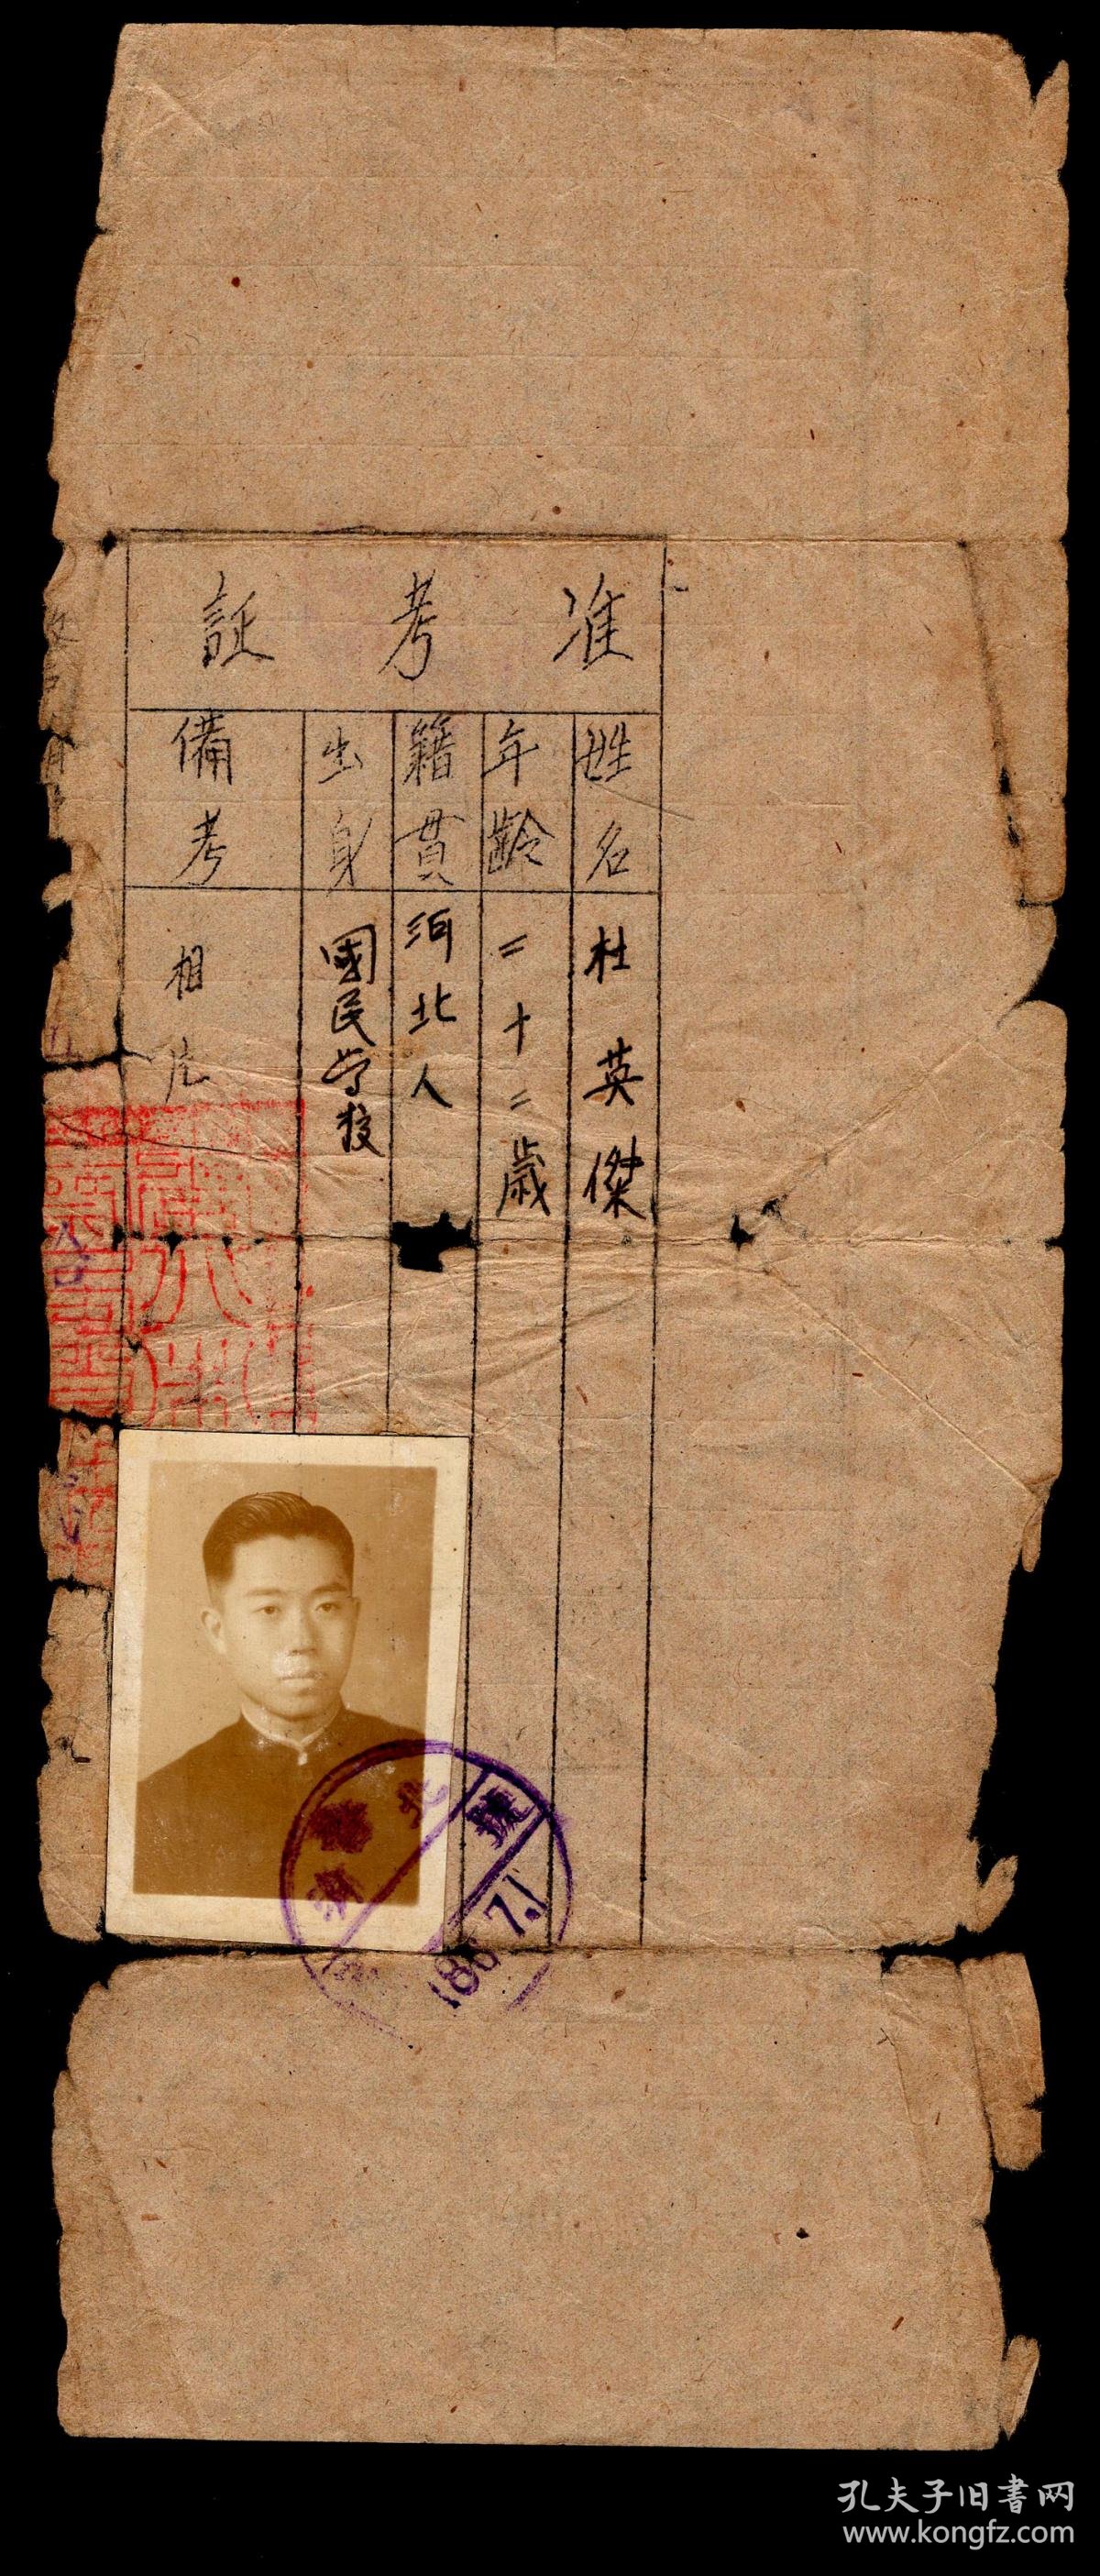 准考証
姓名
杜英傑
年齡
二十二歳
籍貫
河北人
出身
國民学校
備考
相片
號
北
7.1
孔夫子旧書网
www.kongfz.com